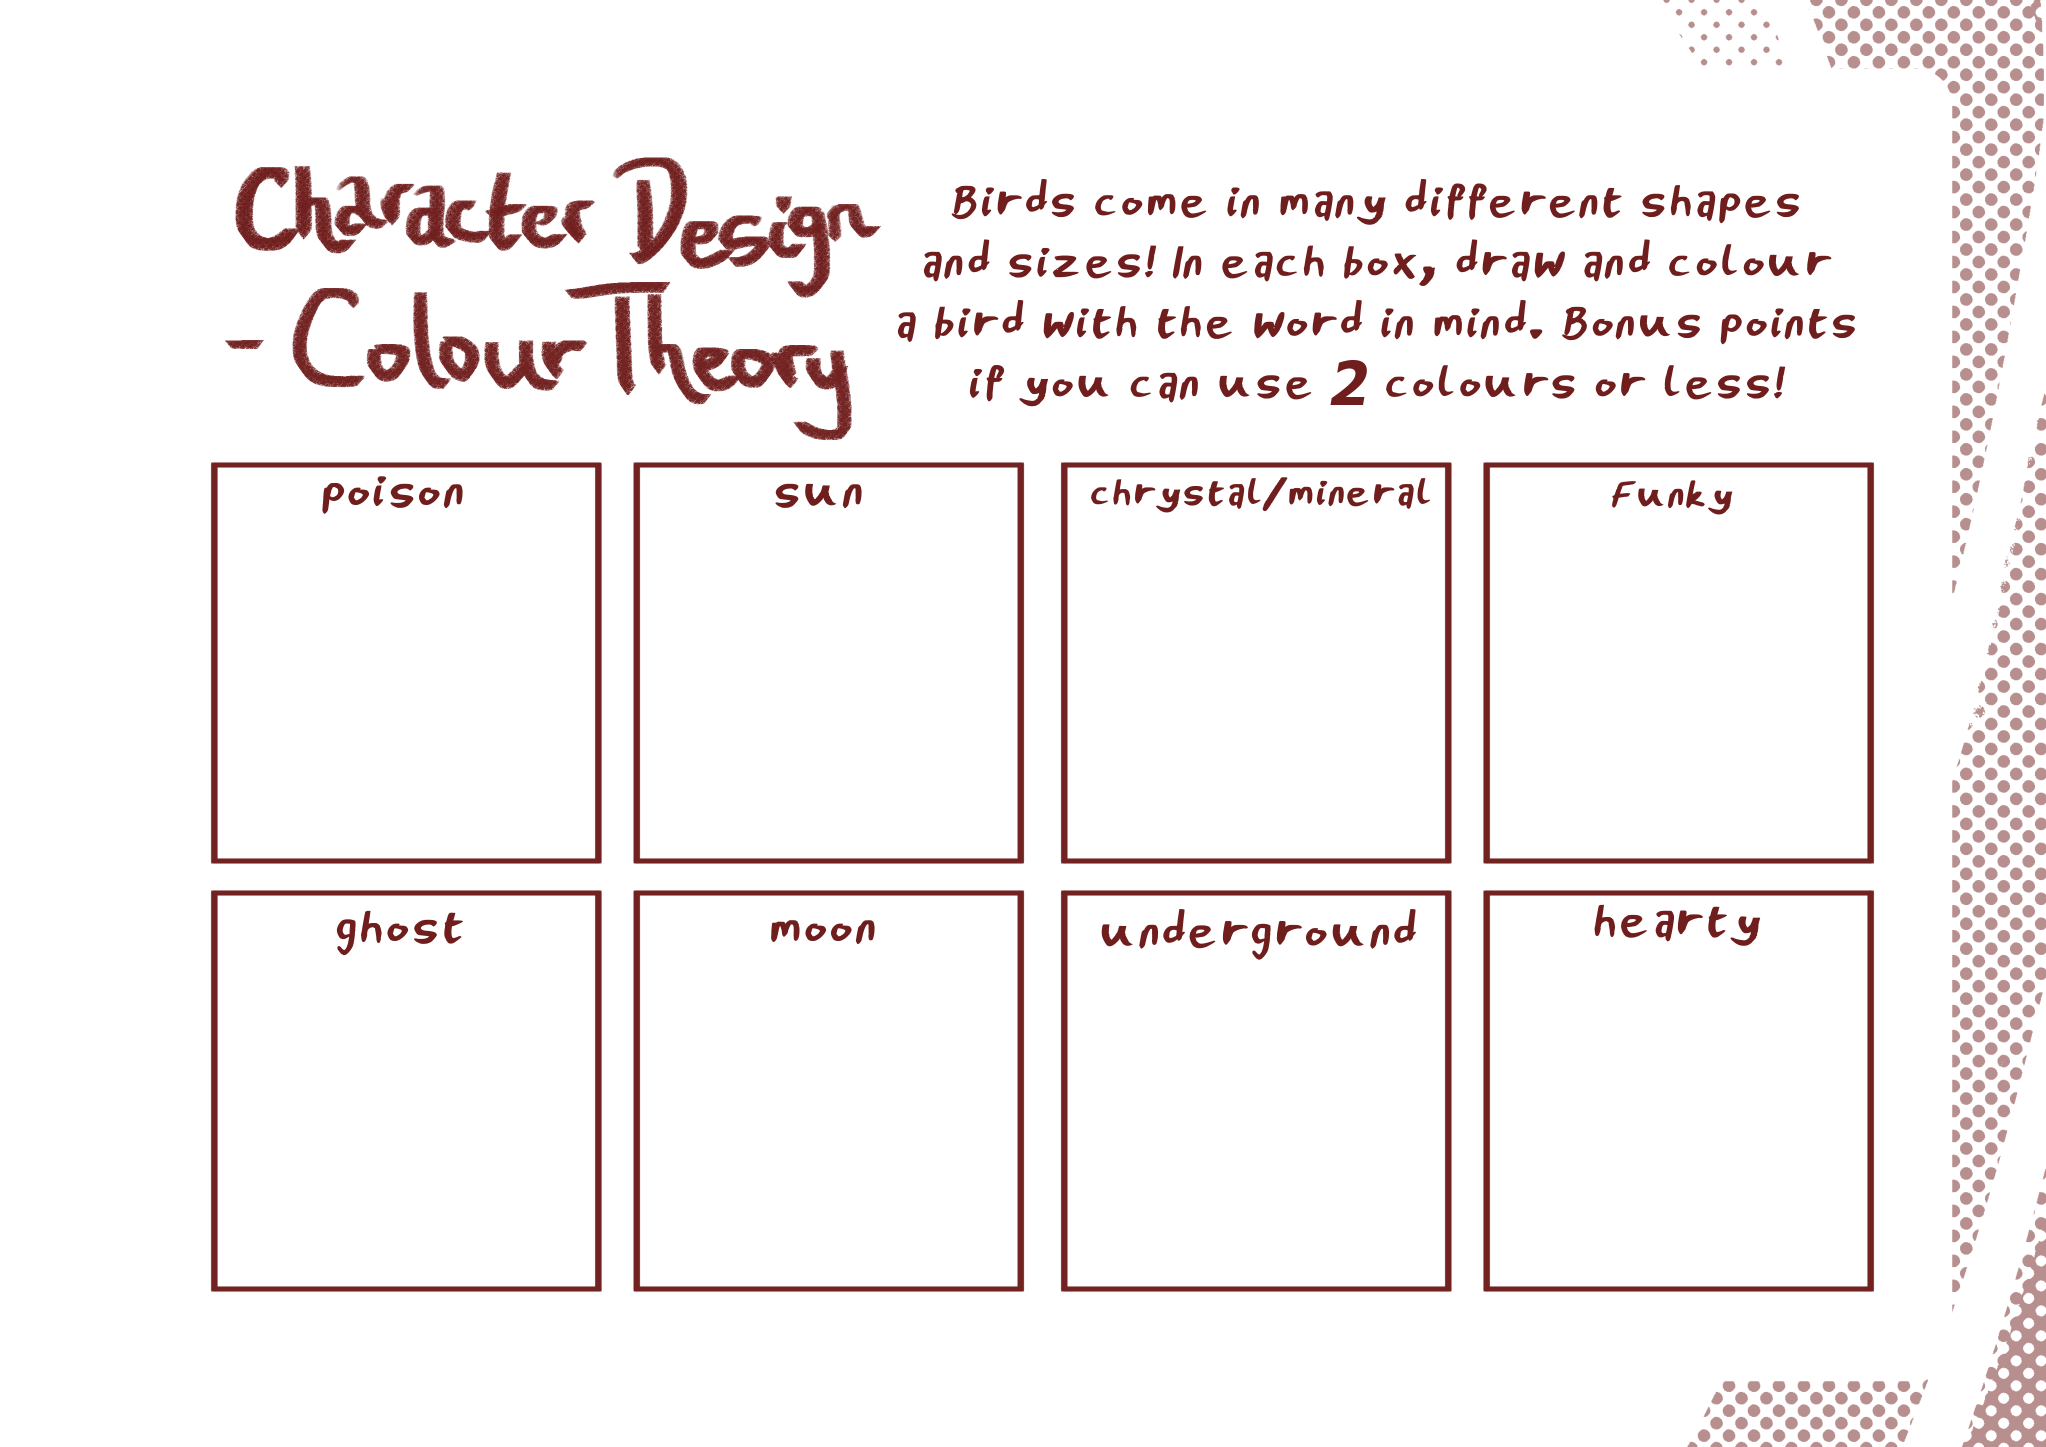 Character Design
- Colour Theory
Birds come in many different shapes
and sizes! In each box, draw and colour
a bird with the word in mind. Bonus points
if you can use 2 colours or less!
poison
sun
chrystal/mineral
Funky
ghost
moon
underground
hearty